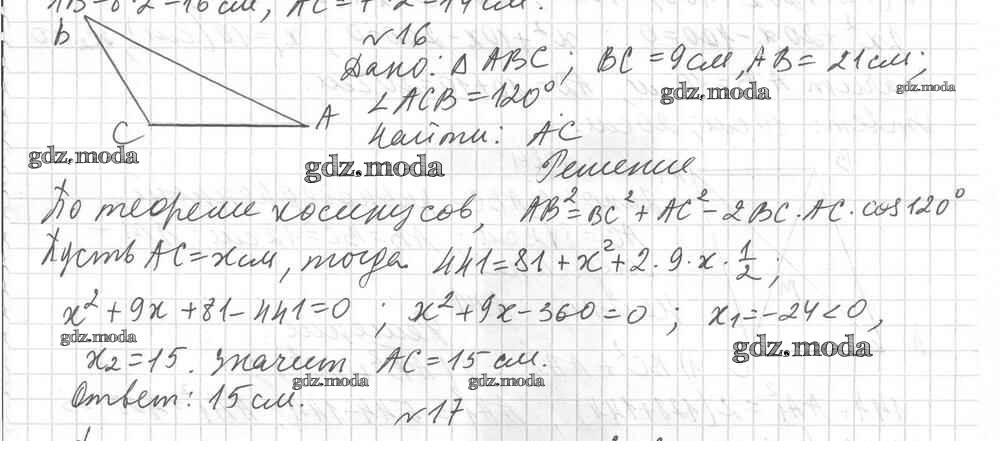 AB=8·2=16см, AC=7·2=14см.
B
№16
Дано: Δ ABC; BC=9см, AB=21см;
gdz.moda
gdz.moda
∠ACB=120°
A
C
Найти: AC
gdz.moda
gdz.moda
Решение
По теореме косинусов, AB²=BC²+AC²-2BC·AC·cos120°
Пусть AC=xсм, тогда 441=81+x²+2·9·x·1/2;
x²+9x+81-441=0; x²+9x-360=0; x₁=-24<0,
gdz.moda
gdz.moda
x₂=15. Значит AC=15см.
gdz.moda
gdz.moda
Ответ: 15см.
№17